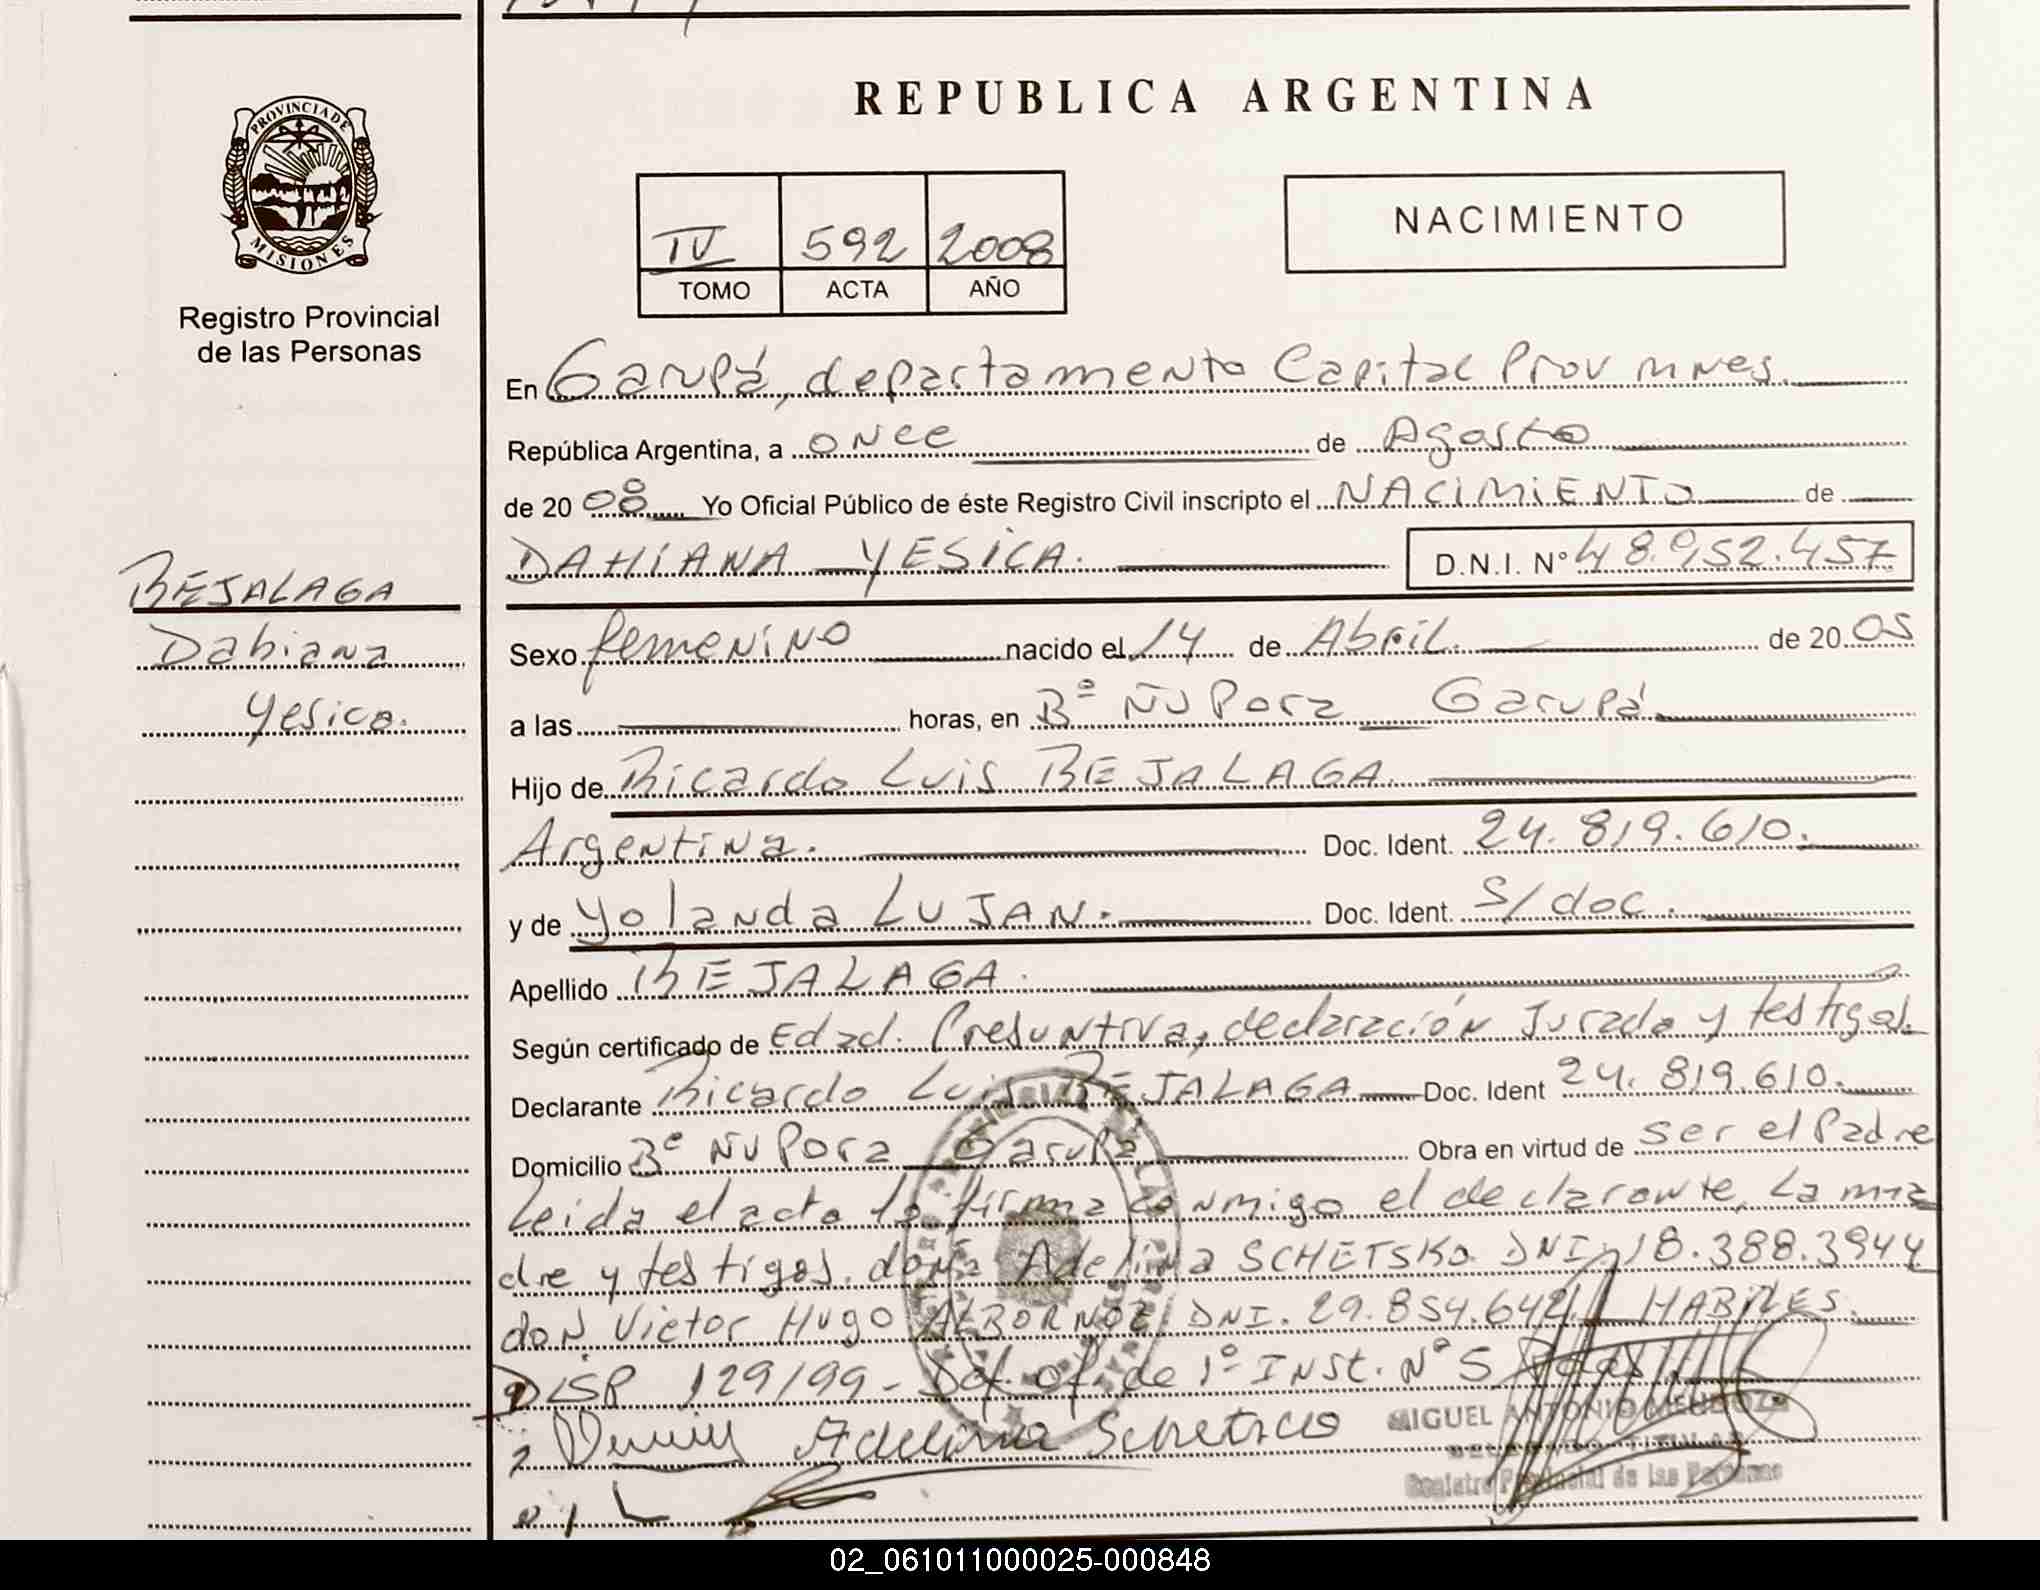 REPUBLICA ARGENTINA
PROVINCIA DE
MISIONES
Registro Provincial
de las Personas
IV 592 2008
TOMO ACTA AÑO
NACIMIENTO
En Garupá, departamento Capital Prov mnes.
República Argentina, a once de Agosto
de 20 08 Yo Oficial Público de éste Registro Civil inscripto el NACIMIENTO de
DAHIANA YESICA. D.N.I. N° 48.952.457
BEJALAGA
Dahiana
Yesica.
Sexo femenino nacido el 14 de Abril. de 20 05
a las horas, en Bº ÑU Pora Garupá
Hijo de Ricardo Luis BEJALAGA
Argentina. Doc. Ident. 24.819.610.
y de Yolanda LUJAN. Doc. Ident. S/doc.
Apellido BEJALAGA.
Según certificado de Edad. Presuntiva, declaración Jurada y testigos.
Declarante Ricardo Luis BEJALAGA Doc. Ident 24.819.610.
Domicilio Bº ÑU Pora Garupá Obra en virtud de ser el Padre
Leida el acta la firma conmigo el declarante, La ma
dre y testigos. doña Adelina SCHETSKO DNI. 18.388.394 y
don Victor Hugo ALBORNOZ DNI. 29.854.642 HABILES.
DISP 129/99 - Def. of. de 1º INST. Nº 5 Pdas
Adelina Schetsco
MIGUEL ANTONIO MENDOZA
TITULAR
Registro Provincial de las Personas
02_061011000025-000848